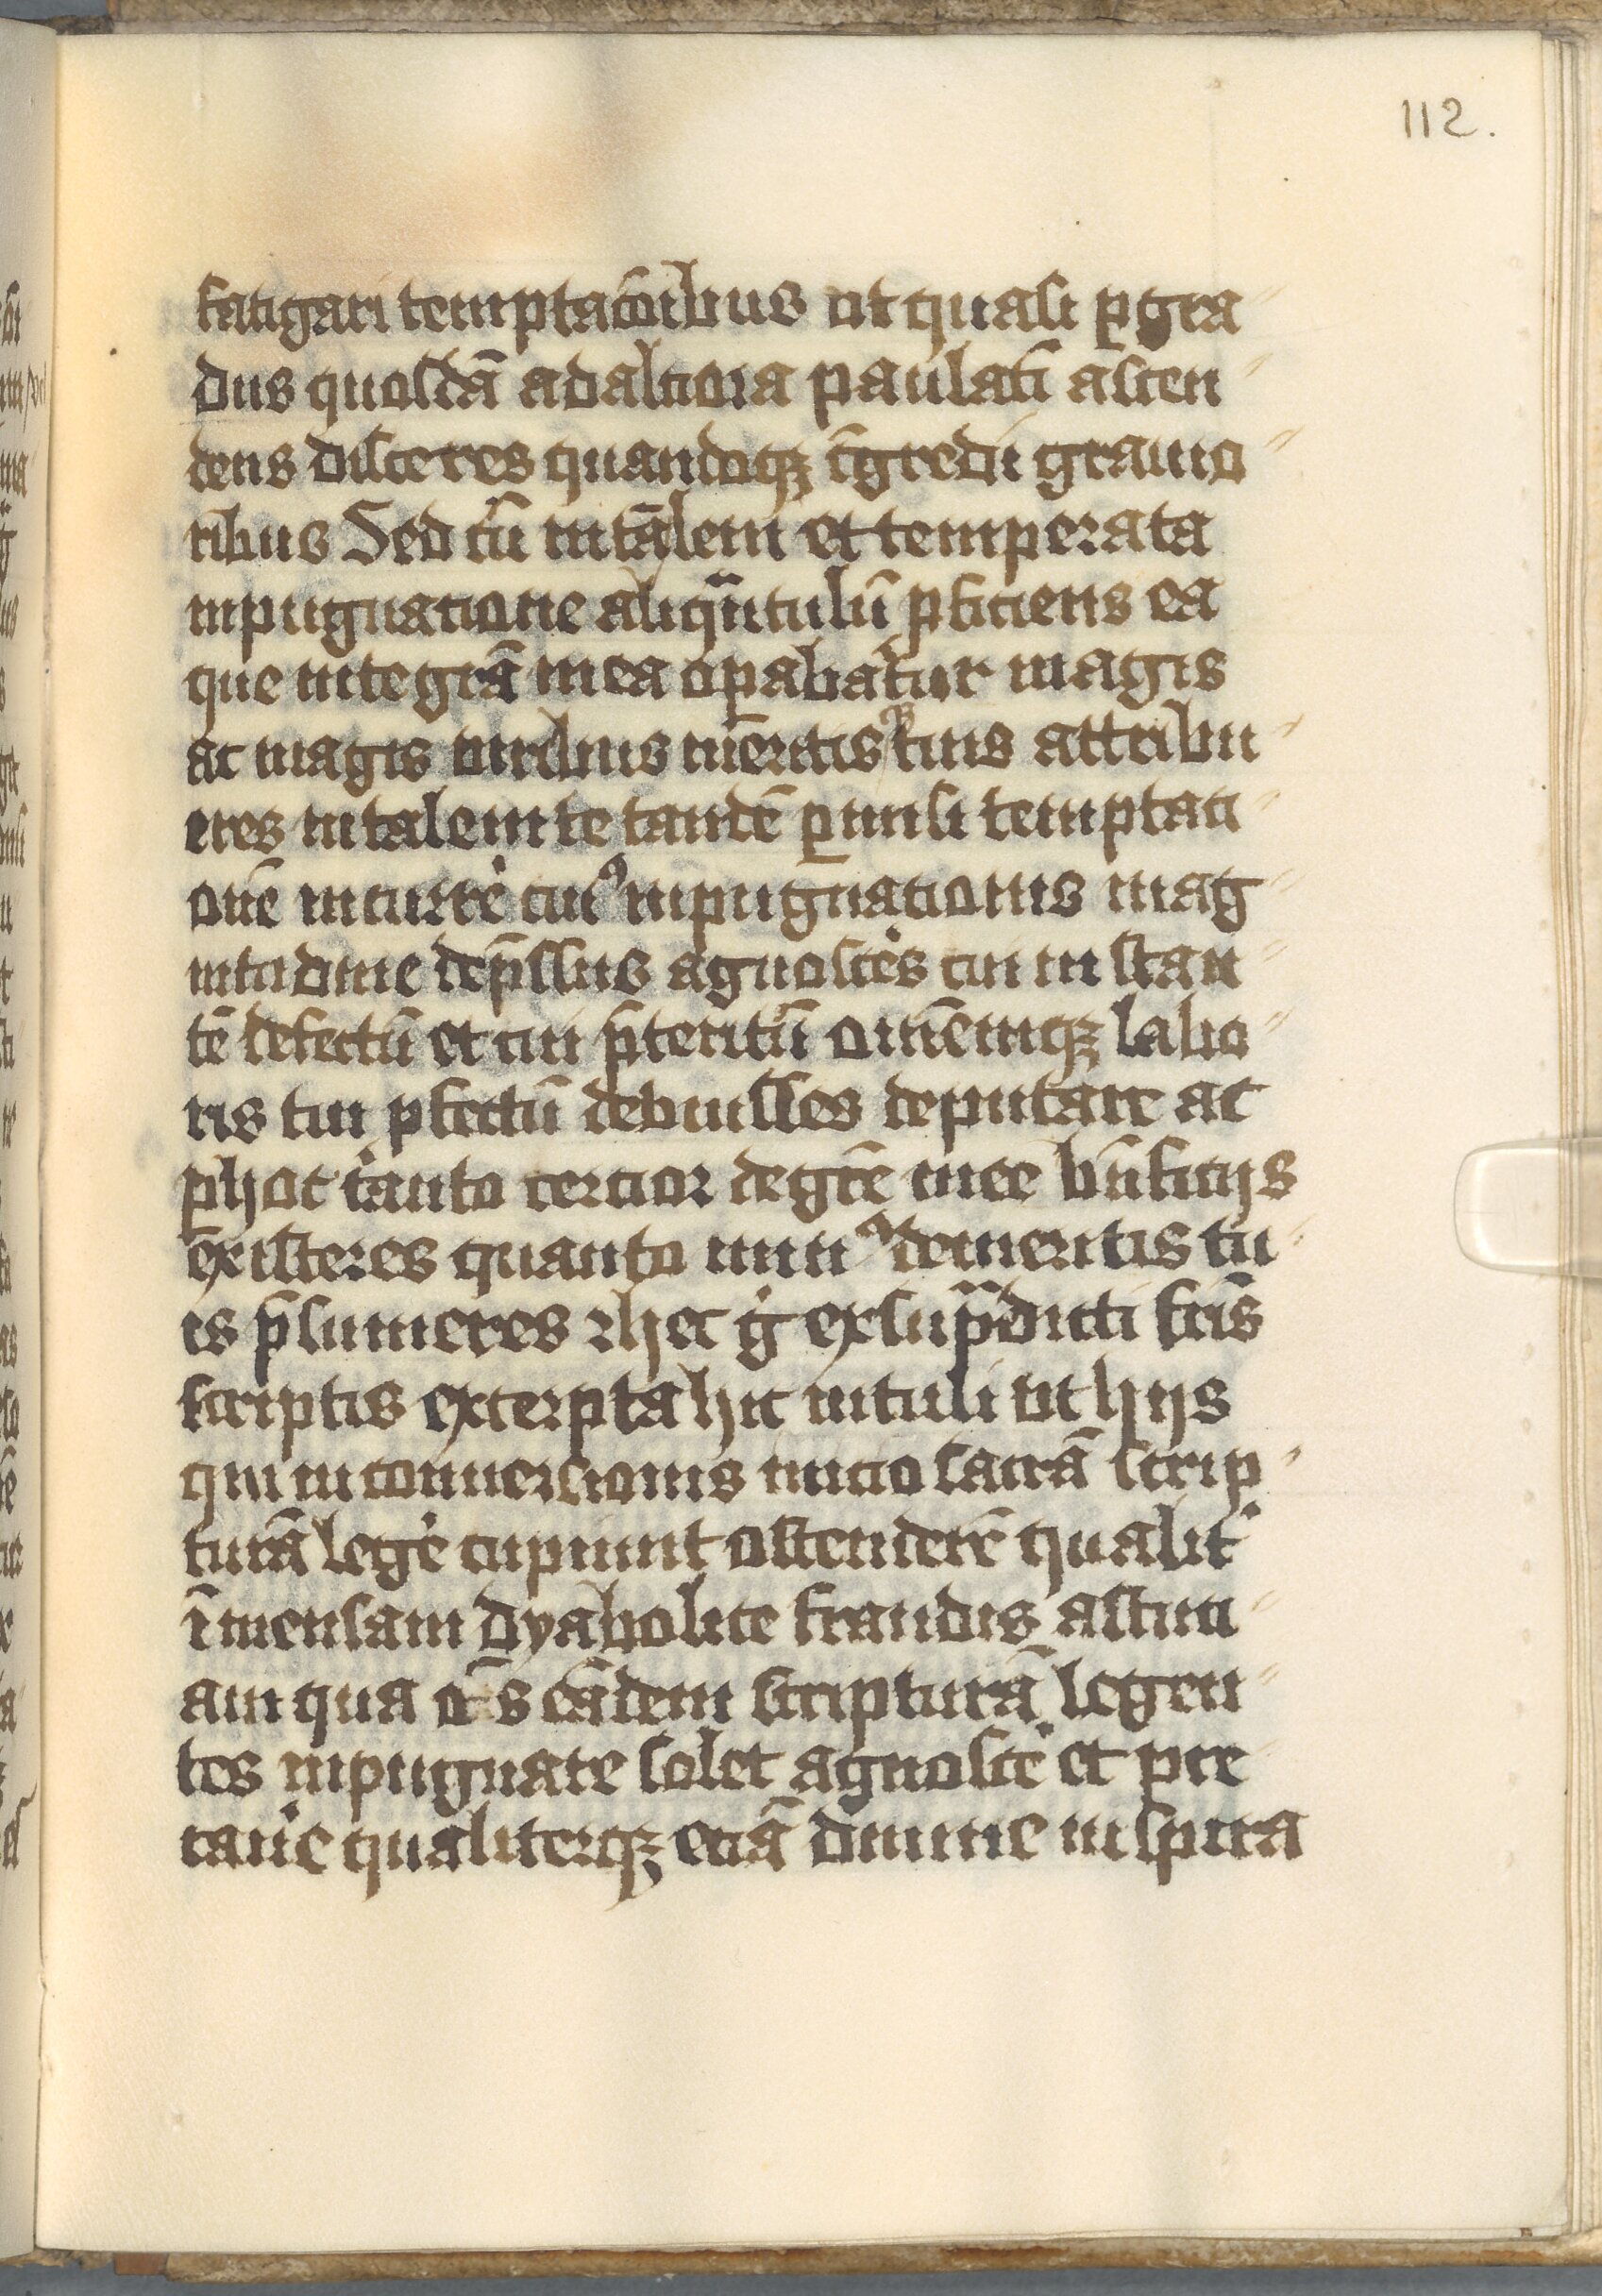 112.
fatigari temptacōībus ut quasi ꝑ gra
dus quosdā ad altiora paulatī ascen
dens disceres quandoqꝫ ꝯgredi grauio
ribus Sed cū in tālem et temperata
inpugnatione aliqͣntulū ꝓficiens ea
que in te grā mea oꝑabatur magis
ac magis uiribus meritisqꝫ tuis attribu
eres in talem te tandē ꝑmisi temptati
onē incurre cuiꝰ inpugnationis mag
nitudine dep̄ssus agnosces cui instan
tē defectū et cui p̄teritū omnēmqꝫ labo
ris tui ꝓfectū debuisses deputare ac
ꝑ hoc tanto cercior de gr̄e mee bn̄ficijs
existeres quanto minꝰ de meritis tu
is p̄sumeres ⁊ hec g̊ ex supͣdicti fr̄is
scriptis excerpta hic intuli ut hijs
qui in conuersionis inicio sacrā scrip
turā lege cupiunt ostenderē qualit
īmensam dyabolice fraudis astuci
am qua o͞s eādem scripturā legen
tes inpugnare solet agnosce et pre
caue qualiterqꝫ eciā diuine inspira